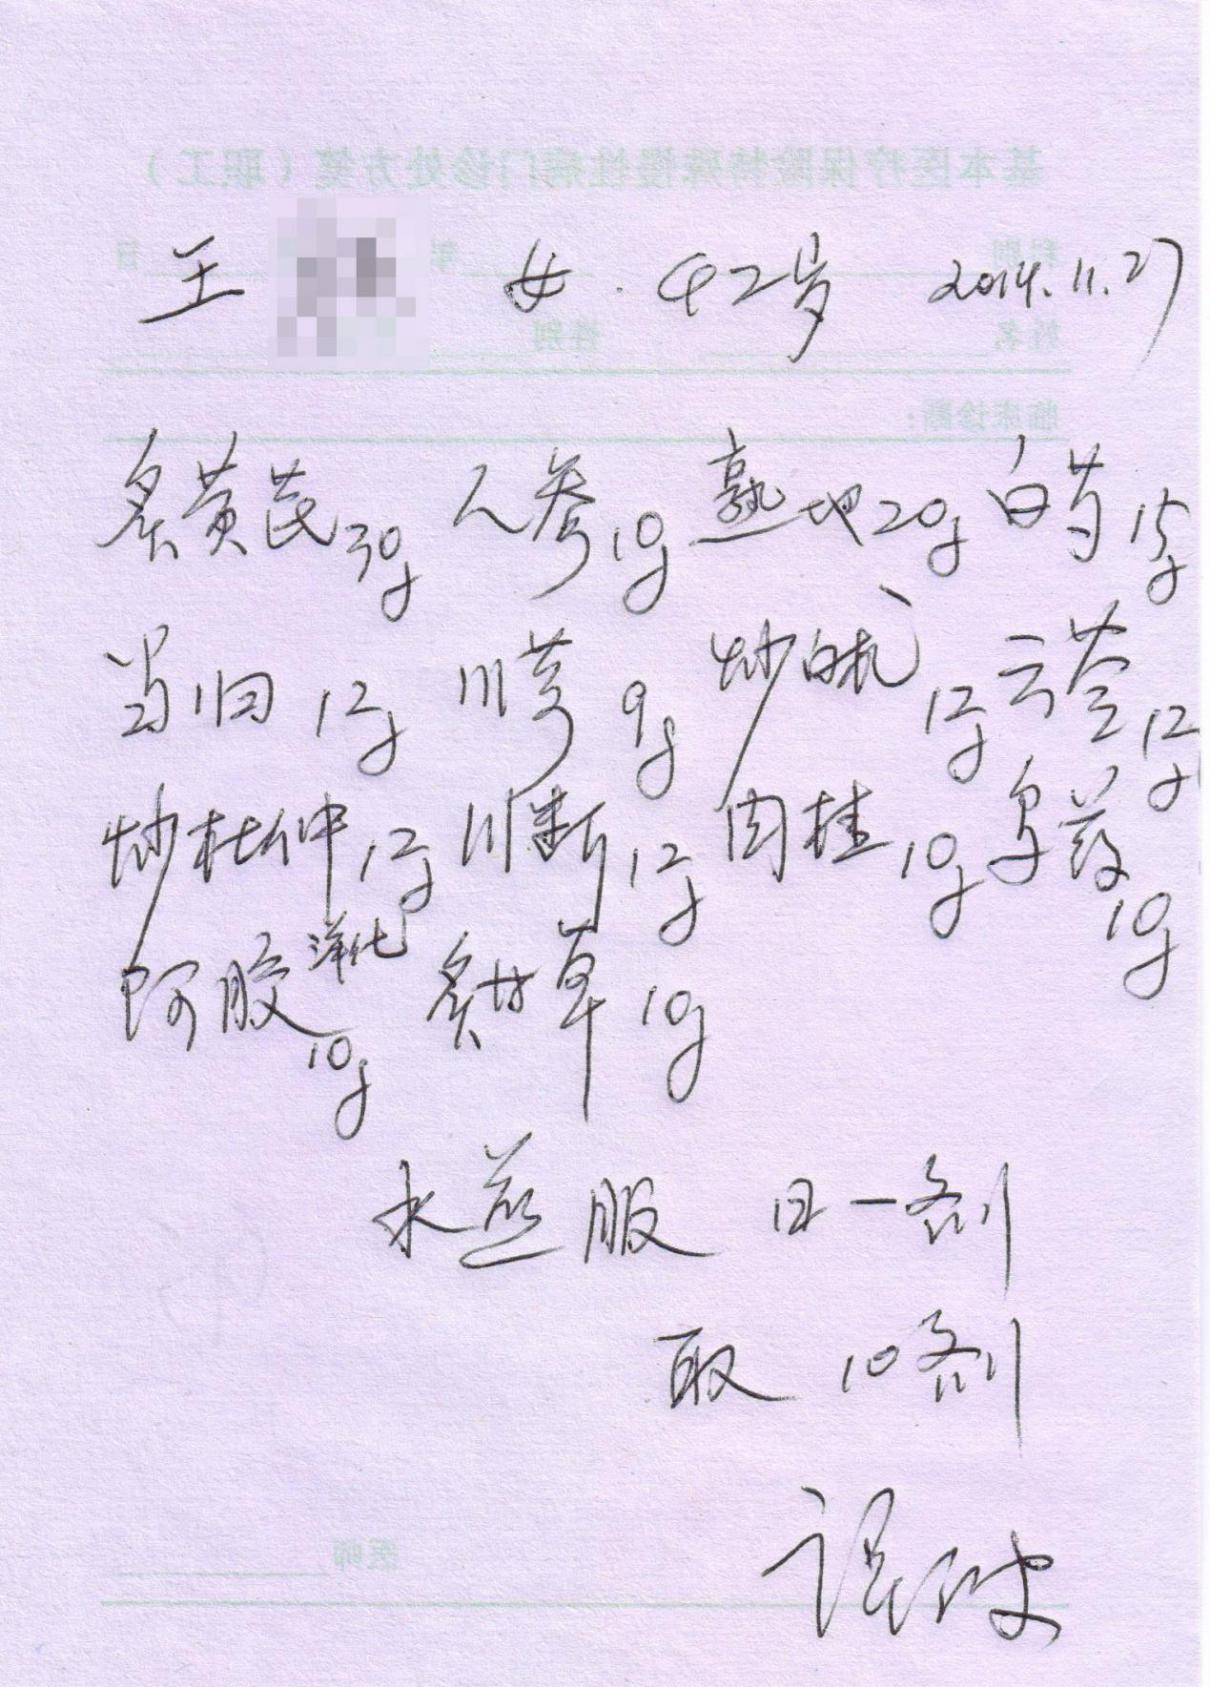 基本医疗保险特殊慢性病门诊处方笺（职工）
科别 年 日
王 女 . 42岁 2014.11.27
姓名 性别
临床诊断：
炙黄芪30g 人参10g 熟地20g 白芍15g
当归12g 川芎9g 炒白术12g 云苓12g
炒杜仲12g 川断12g 肉桂10g 乌药10g
阿胶烊化10g 炙甘草10g
水煎服 日一剂
取 10剂
医师